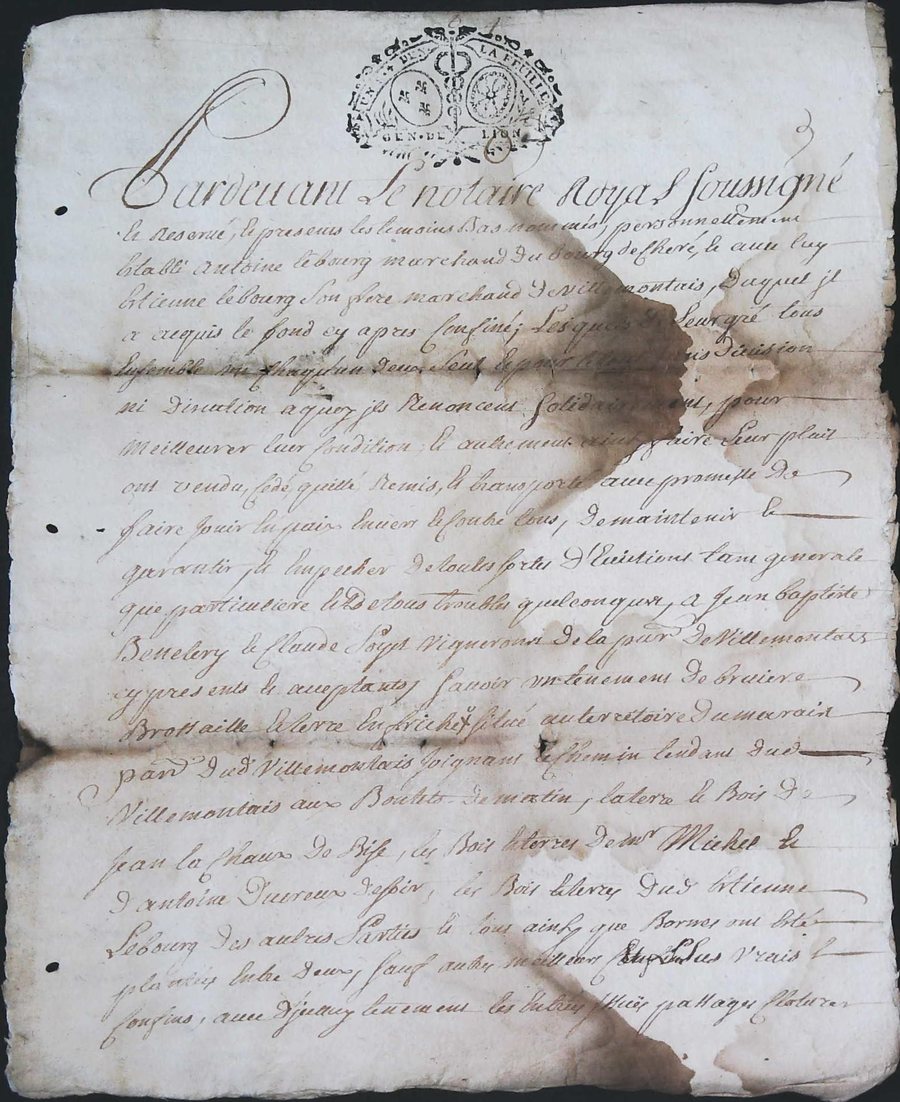 UN S. 4 DEN. LA FEUILLE
GEN. DE LION
Pardevant Le notaire Royal Soussigné
et Reservé, et presents les temoins Bas nommés, personnellement
Etabli Antoine lebourg marchand du bourg de Cheré, et avec luy
Etienne lebourg Son frere marchand de Villemontais, duquel il
a acquis le fond cy apres Confiné; Lesquels de Leur gré tous
Ensemble un Chaq'un deux Seul et pour le division
ni Discution a quoy ils Renoncent Solidairement, pour
meilleurer leur Condition et autrement ainsy faire Leur plait
ont vendu, Cedé, quitté Remis, et transporté avec promesse de
faire Jouir en paix Envers et Contre tous, de maintenir et
garantir, et Empecher de toutes sortes D'Evictions tant generale
que particuliere et de tous troubles quelconques, a Jean baptiste
et Claude Vignerons de la par. de Villemontais
cy presents et acceptants, Savoir un tenement de bruiere
Brossaille et terre En friche situé au terretoire du marais
par. dud Villemontais Joignant le Chemin tendant dud
Villemontais aux de matin, la terre et Bois de
Jean la Chaux de Bise, les Bois et terres de mr Michel et
d'antoine Ducreux de soir, les Bois et terres dud Etienne
Lebourg des autres Parties et tous ainsy que Bornes ont été
plantés Entre deux, Sauf autres meilleurs vrais
Confins, avec D'iceluy tenement les Entrées passages Clotures